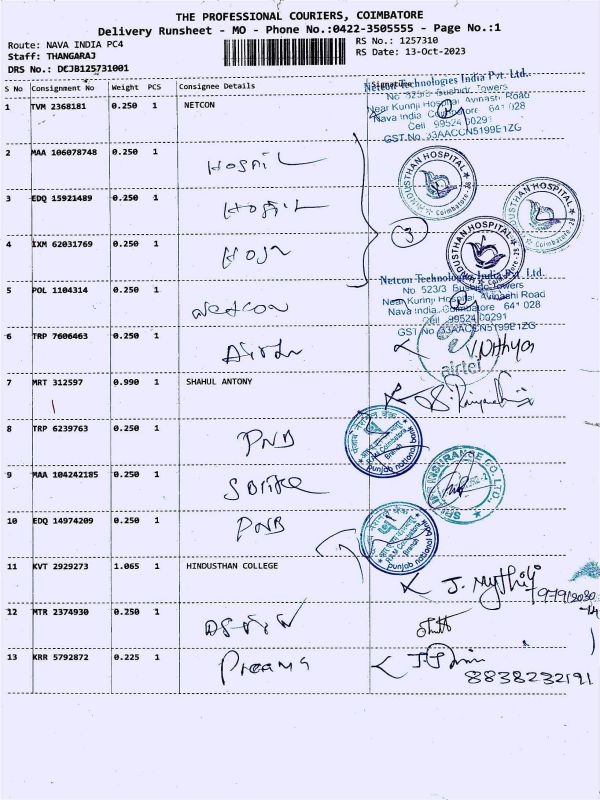 THE PROFESSIONAL COURIERS, COIMBATORE
Delivery Runsheet - MO - Phone No.:0422-3505555 - Page No.:1
Route: NAVA INDIA PC4
RS No.: 1257310
Staff: THANGARAJ
RS Date: 13-Oct-2023
DRS No.: DCJB125731001
S No Consignment No Weight PCS Consignee Details Signature
Netcon Technologies India Pvt. Ltd.,
No 523/3 Sushidr Towers
Near Kurinji Hospital Avinashi Road
Nava India Coimbatore 641 028
Cell 99524 00291
GST No 33AACCN5199E1ZG
1 TVM 2368181 0.250 1 NETCON
2 MAA 106078748 0.250 1
HINDUSTHAN HOSPITAL
Coimbatore-28
3 EDQ 15921489 0.250 1
HINDUSTHAN HOSPITAL
Coimbatore-28
4 IXM 62031769 0.250 1
3
HINDUSTHAN HOSPITAL
Coimbatore-28
5 POL 1104314 0.250 1 Netcon
Netcon Technologies India Pvt. Ltd.
No 523/3 Sushidr Towers
Near Kurinji Hospital Avinashi Road
Nava India, Coimbatore 641 028
Cell 99524 00291
GST No 33AACCN5199E1ZG
6 TRP 7606463 0.250 1
airtel
V. Nithya
7 MRT 312597 0.990 1 SHAHUL ANTONY
8 TRP 6239763 0.250 1 PNB
punjab national bank
9 MAA 104242185 0.250 1
INSURANCE CO. LTD.
10 EDQ 14974209 0.250 1 PNB
punjab national bank
11 KVT 2929273 1.065 1 HINDUSTHAN COLLEGE
J. Mythili
12 MTR 2374930 0.250 1
13 KRR 5792872 0.225 1
8838232191